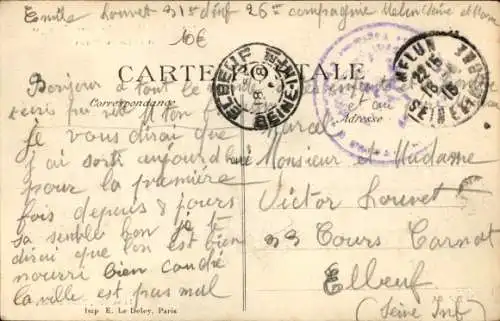 Emile Louvet 31e d'inf 26me compagnie Melun (Seine et Marne
10€
CARTE POSTALE
Correspondance
Adresse
ELBEUF
SEINE-INFRE
MELUN
22 15
SEINE ET
Bonjour à tout le
je vous dirai que
j'ai sorti aujourd'hui
pour la première
fois depuis 8 jours
sa semble bon je te
dirai que l'on est bien
nourri bien couché
la ville est pas mal
Monsieur et Madame
Victor Louvet
33 Cours Carnot
Elbeuf
(Seine Inf)
Imp E. Le Deley, Paris